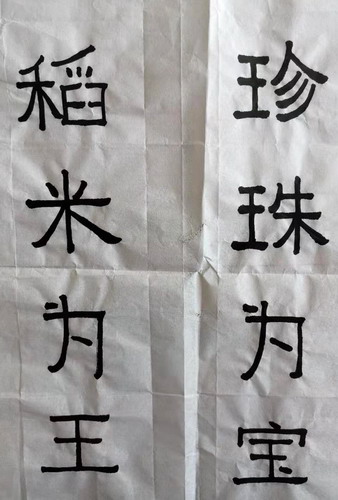 珍珠为宝
稻米为王